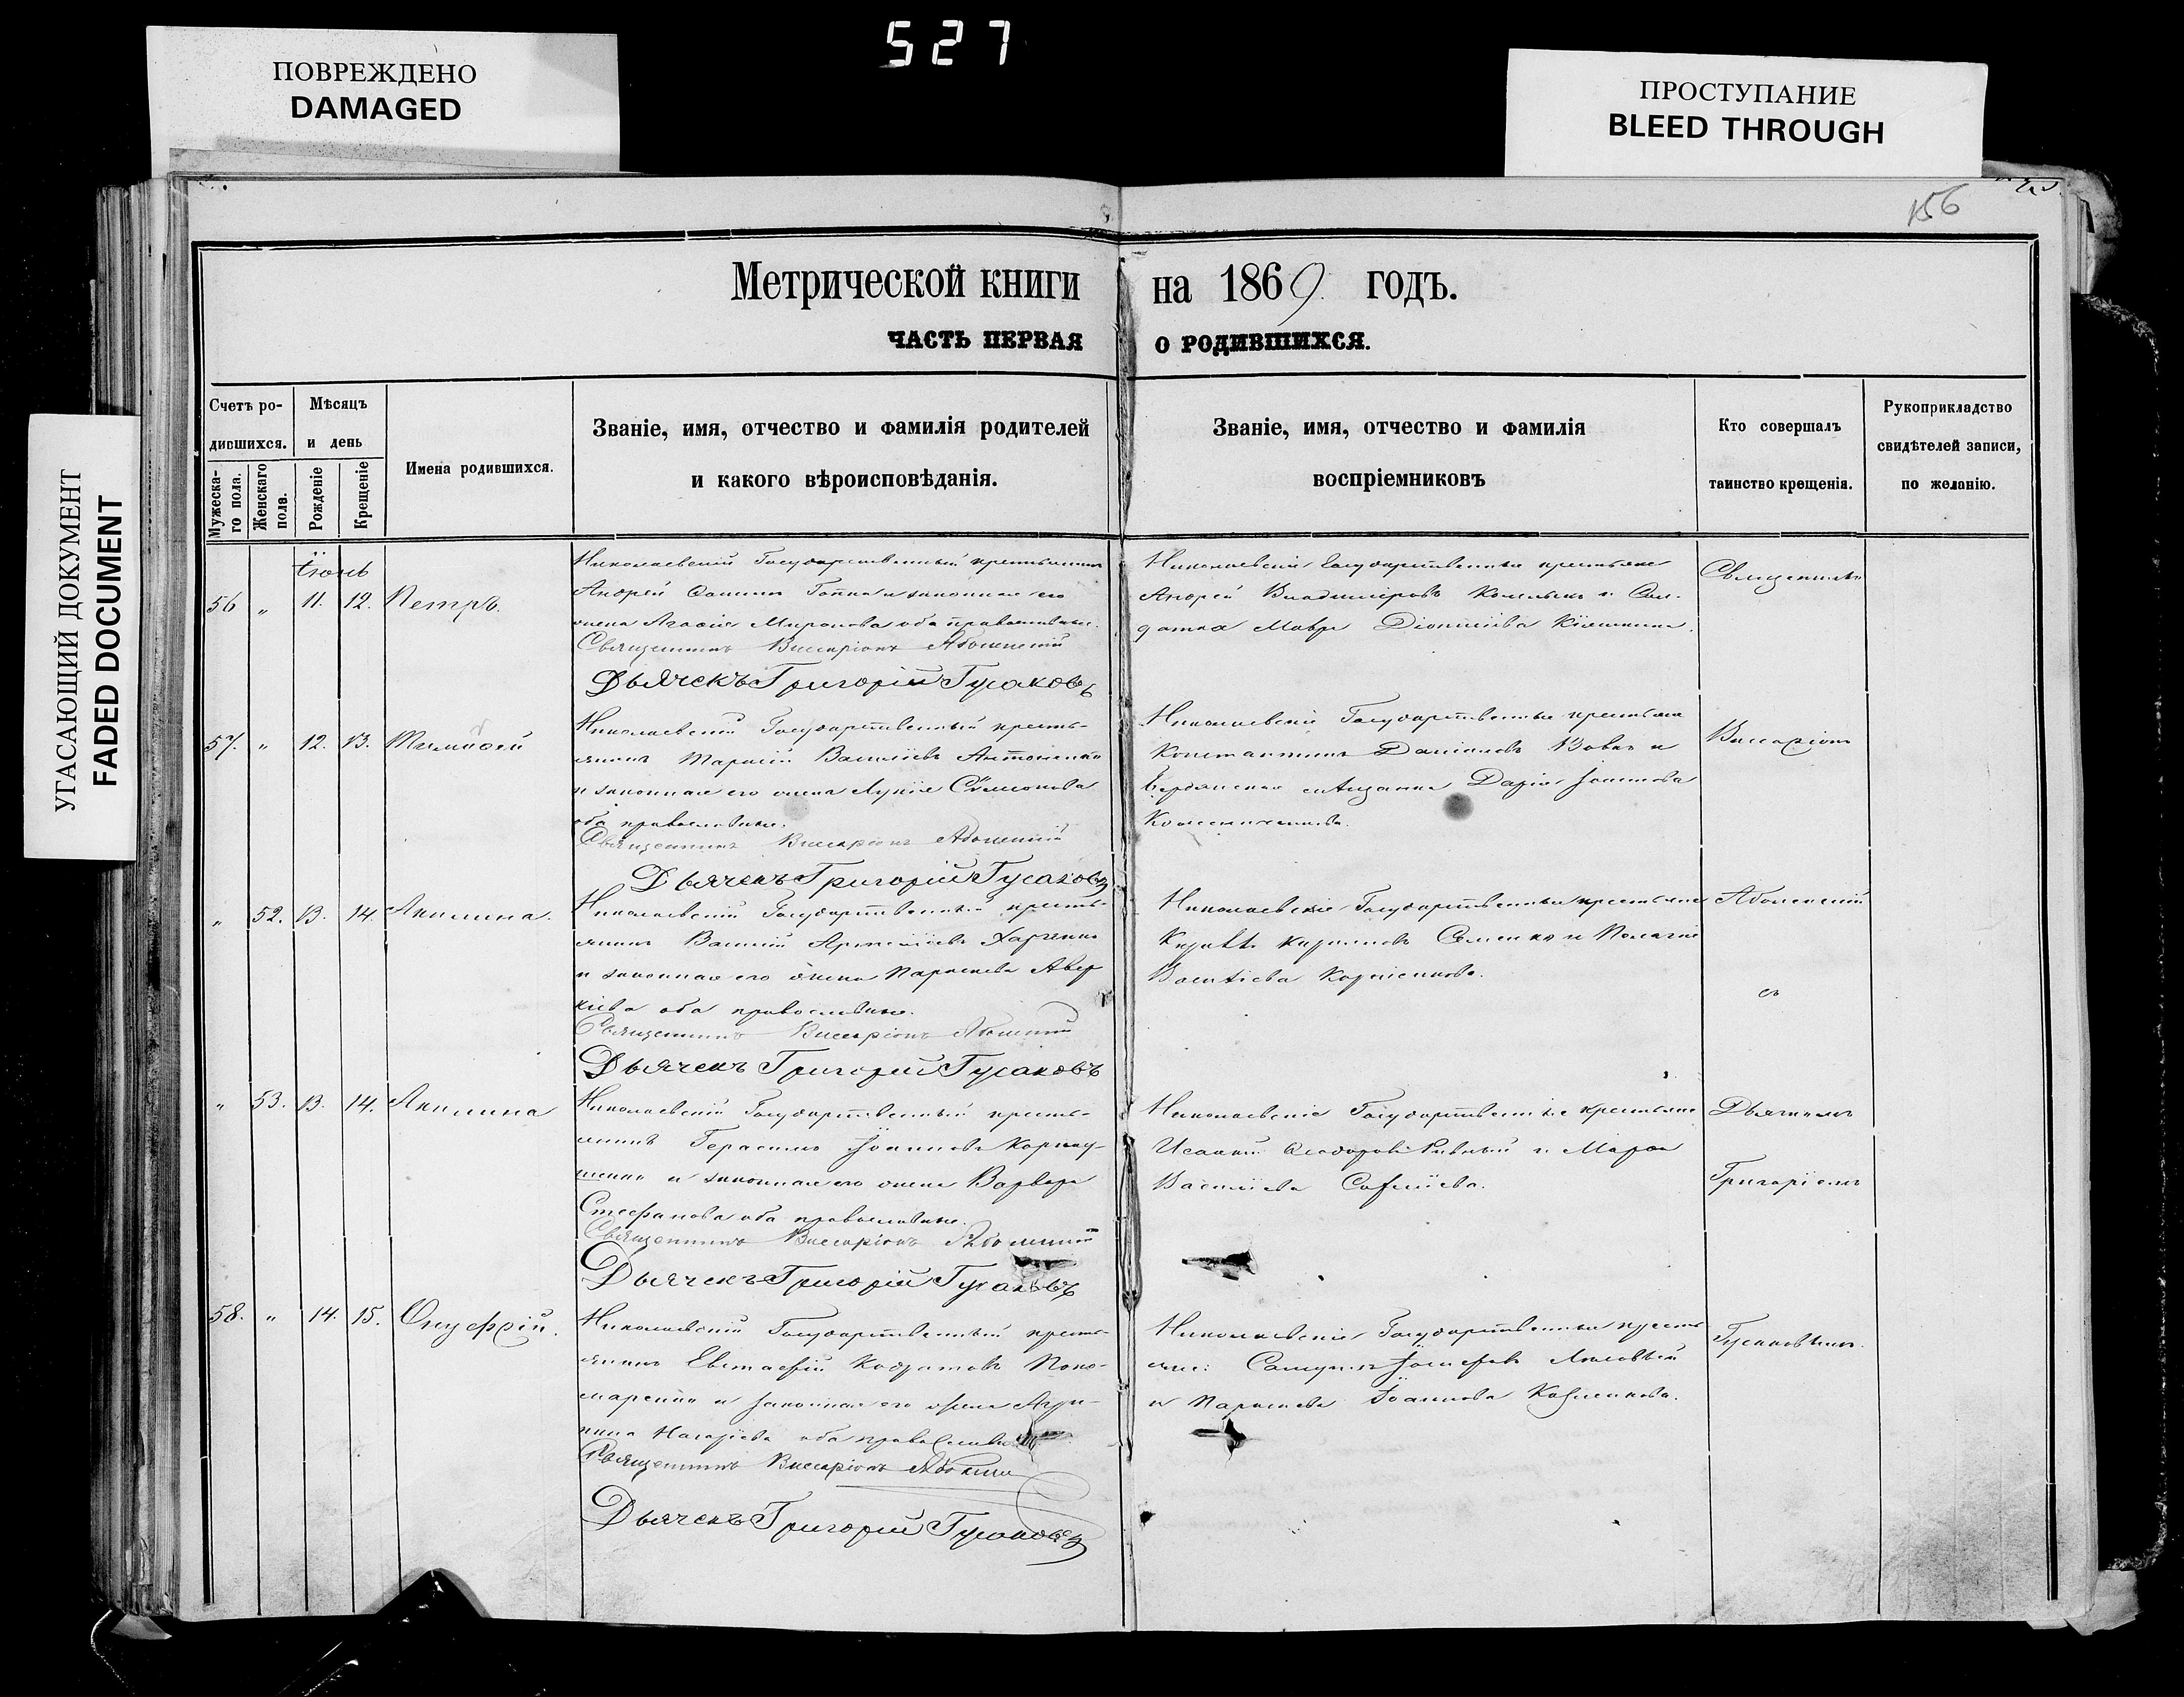 527
ПОВРЕЖДЕНО
DAMAGED
ПРОСТУПАНИЕ
BLEED THROUGH
УГАСАЮЩИЙ ДОКУМЕНТ
FADED DOCUMENT
156
Метрической книги на 1869 годъ.
ЧАСТЬ ПЕРВАЯ О РОДИВШИХСЯ.
Счетъ ро-
дившихся.
Мужеска-
го пола.
Женскаго
пола.
Мѣсяцъ
и день
Рожденіе
Крещеніе
Имена родившихся.
Званіе, имя, отчество и фамилія родителей
и какого вѣроисповѣданія.
Званіе, имя, отчество и фамилія
воспріемниковъ
Кто совершалъ
таинство крещенія.
Рукоприкладство
свидѣтелей записи,
по желанію.
Іюнь
56 „ 11. 12. Петръ.
Николаевскій Государственный крестьянинъ
Андрей и законная его
жена Агафія Миронова оба православные.
Священникъ Виссаріонъ
Дьячекъ Григорій Гусаковъ
Николаевскіе Государственные крестьяне
Андрей Владиміровъ и Сол-
датка Мавра Діонисіева
Священникъ
57. „ 12. 13. Тимофей
Николаевскій Государственный кресть-
янинъ Тарасій Василіевъ Антоненко
и законная его жена Лукія Симеонова
оба православные.
Священникъ Виссаріонъ
Дьячекъ Григорій Гусаковъ
Николаевскіе Государственные крестьяне
Константинъ Даніиловъ Вовкъ и
Бердянская мѣщанка Дарія Іоаннова
Виссаріонъ
„ 52. 13. 14. Акилина.
Николаевскій Государственный кресть-
янинъ Василій Харченко
и законная его жена Параскева Авер-
кіева оба православные.
Священникъ Виссаріонъ
Дьячекъ Григорій Гусаковъ
Николаевскіе Государственные крестьяне
Кириллъ Кирилловъ Семенко и Пелагія
Василіева Корніенкова.
съ
„ 53. 13. 14. Акилина
Николаевскій Государственный кресть-
янинъ Герасимъ Іоанновъ Корнау-
шенко и законная его жена Варвара
Стефанова оба православные.
Священникъ Виссаріонъ
Дьячекъ Григорій Гусаковъ
Николаевскіе Государственные крестьяне
Исаакій Феодоровъ Ривный и Марфа
Василіева
Дьячкомъ
Григоріемъ
58. „ 14. 15. Онуфрій.
Николаевскій Государственный кресть-
янинъ Евстафій Кодратовъ Поно-
маренко и законная его жена Агри-
пина оба православные
Священникъ Виссаріонъ
Дьячекъ Григорій Гусаковъ
Николаевскіе Государственные кресть-
яне: Самуилъ Іосифовъ
и Параскева Іоаннова
Гусаковымъ.